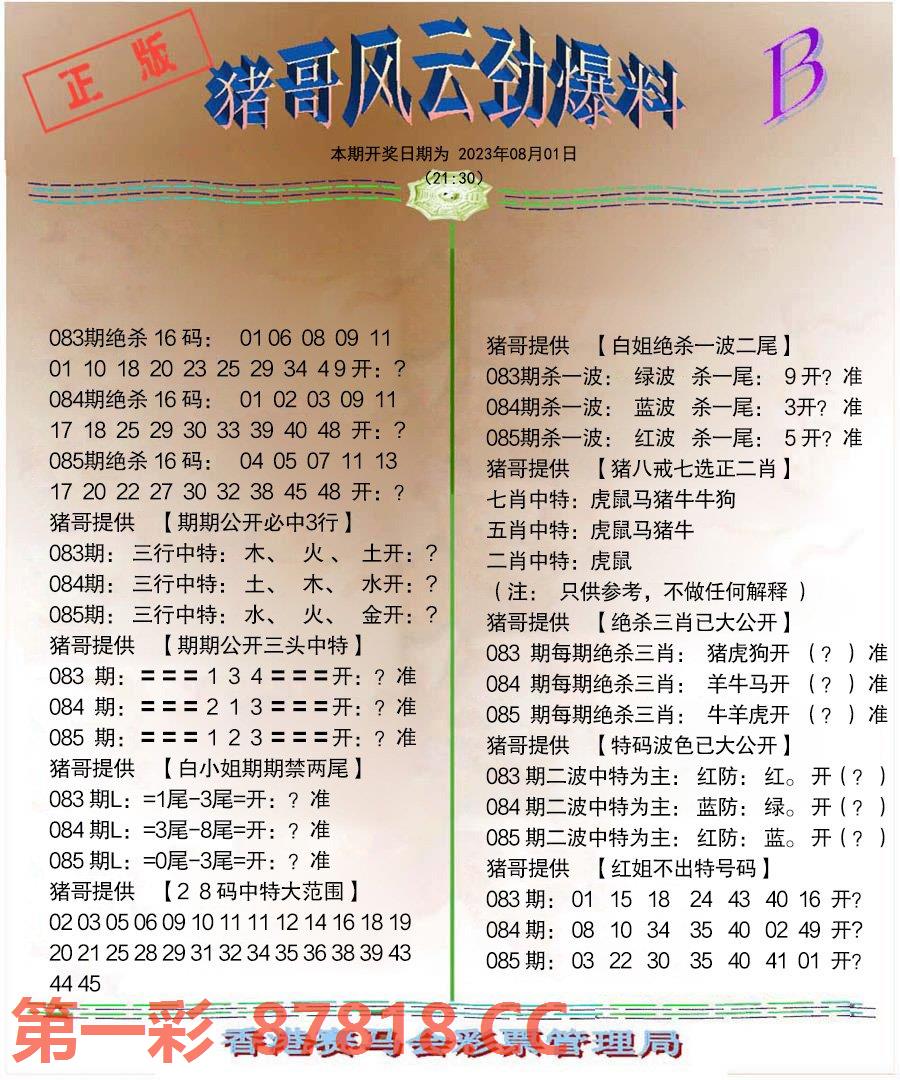 正版
猪哥风云劲爆料
B
本期开奖日期为 2023年08月01日
(21:30)
083期绝杀 16 码： 01 06 08 09 11
01 10 18 20 23 25 29 34 4 9 开：?
084期绝杀 16 码： 01 02 03 09 11
17 18 25 29 30 33 39 40 48 开：?
085期绝杀 16 码： 04 05 07 11 13
17 20 22 27 30 32 38 45 48 开：?
猪哥提供 【期期公开必中3行】
083期： 三行中特： 木、 火 、 土开：?
084期： 三行中特： 土、 木、 水开：?
085期： 三行中特： 水、 火、 金开：?
猪哥提供 【期期公开三头中特】
083 期：＝＝＝ 1 3 4 ＝＝＝开：? 准
084 期：＝＝＝ 2 1 3 ＝＝＝开：? 准
085 期：＝＝＝ 1 2 3 ＝＝＝开：? 准
猪哥提供 【白小姐期期禁两尾】
083 期L：=1尾-3尾=开：? 准
084 期L：=3尾-8尾=开：? 准
085 期L：=0尾-3尾=开：? 准
猪哥提供 【2 8 码中特大范围】
02 03 05 06 09 10 11 11 12 14 16 18 19
20 21 25 28 29 31 32 34 35 36 38 39 43
44 45
猪哥提供 【白姐绝杀一波二尾】
083期杀一波： 绿波 杀一尾： 9 开? 准
084期杀一波： 蓝波 杀一尾： 3开? 准
085期杀一波： 红波 杀一尾： 5 开? 准
猪哥提供 【猪八戒七选正二肖】
七肖中特：虎鼠马猪牛牛狗
五肖中特：虎鼠马猪牛
二肖中特：虎鼠
（注： 只供参考，不做任何解释 ）
猪哥提供 【绝杀三肖已大公开】
083 期每期绝杀三肖： 猪虎狗开 （? ）准
084 期每期绝杀三肖： 羊牛马开 （? ）准
085 期每期绝杀三肖： 牛羊虎开 （? ）准
猪哥提供 【特码波色已大公开】
083 期二波中特为主： 红防： 红。 开（? ）
084 期二波中特为主： 蓝防： 绿。 开（? ）
085 期二波中特为主： 红防： 蓝。 开（? ）
猪哥提供 【红姐不出特号码】
083 期： 01 15 18 24 43 40 16 开?
084 期： 08 10 34 35 40 02 49 开?
085 期： 03 22 30 35 40 41 01 开?
第一彩 87818.CC
香港赛马会彩票管理局